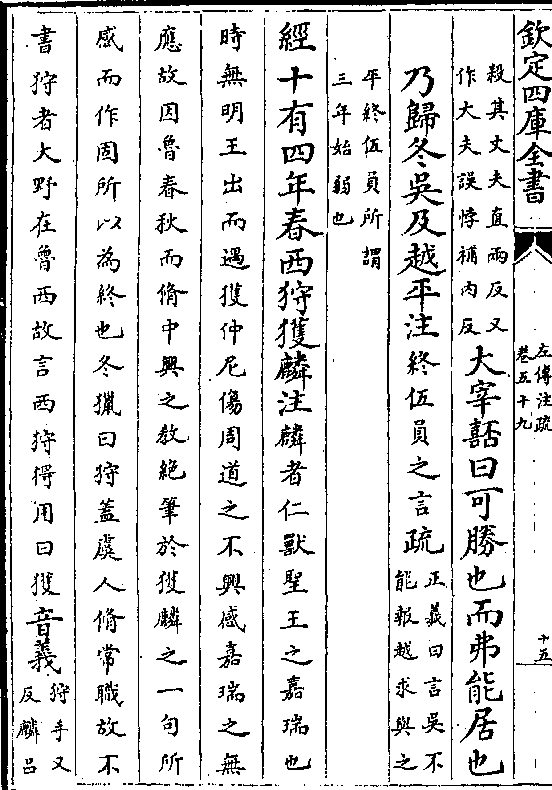 欽定四庫全書
左傳注疏
卷五十九
十五
殺其丈夫直兩反又
作大夫誤悖補内反
大宰嚭曰可勝也而弗能居也
乃歸冬吳及越平注終伍員之言疏
正義曰言吳不
能報越求與之
平終伍員所謂
三年始弱也
經十有四年春西狩獲麟注麟者仁獸聖王之嘉瑞也
時無明王出而遇獲仲尼傷周道之不興感嘉瑞之無
應故因魯春秋而脩中興之教絶筆於獲麟之一句所
感而作固所以為終也冬獵曰狩蓋虞人脩常職故不
書狩者大野在魯西故言西狩得用曰獲音義
狩手又
反麟吕